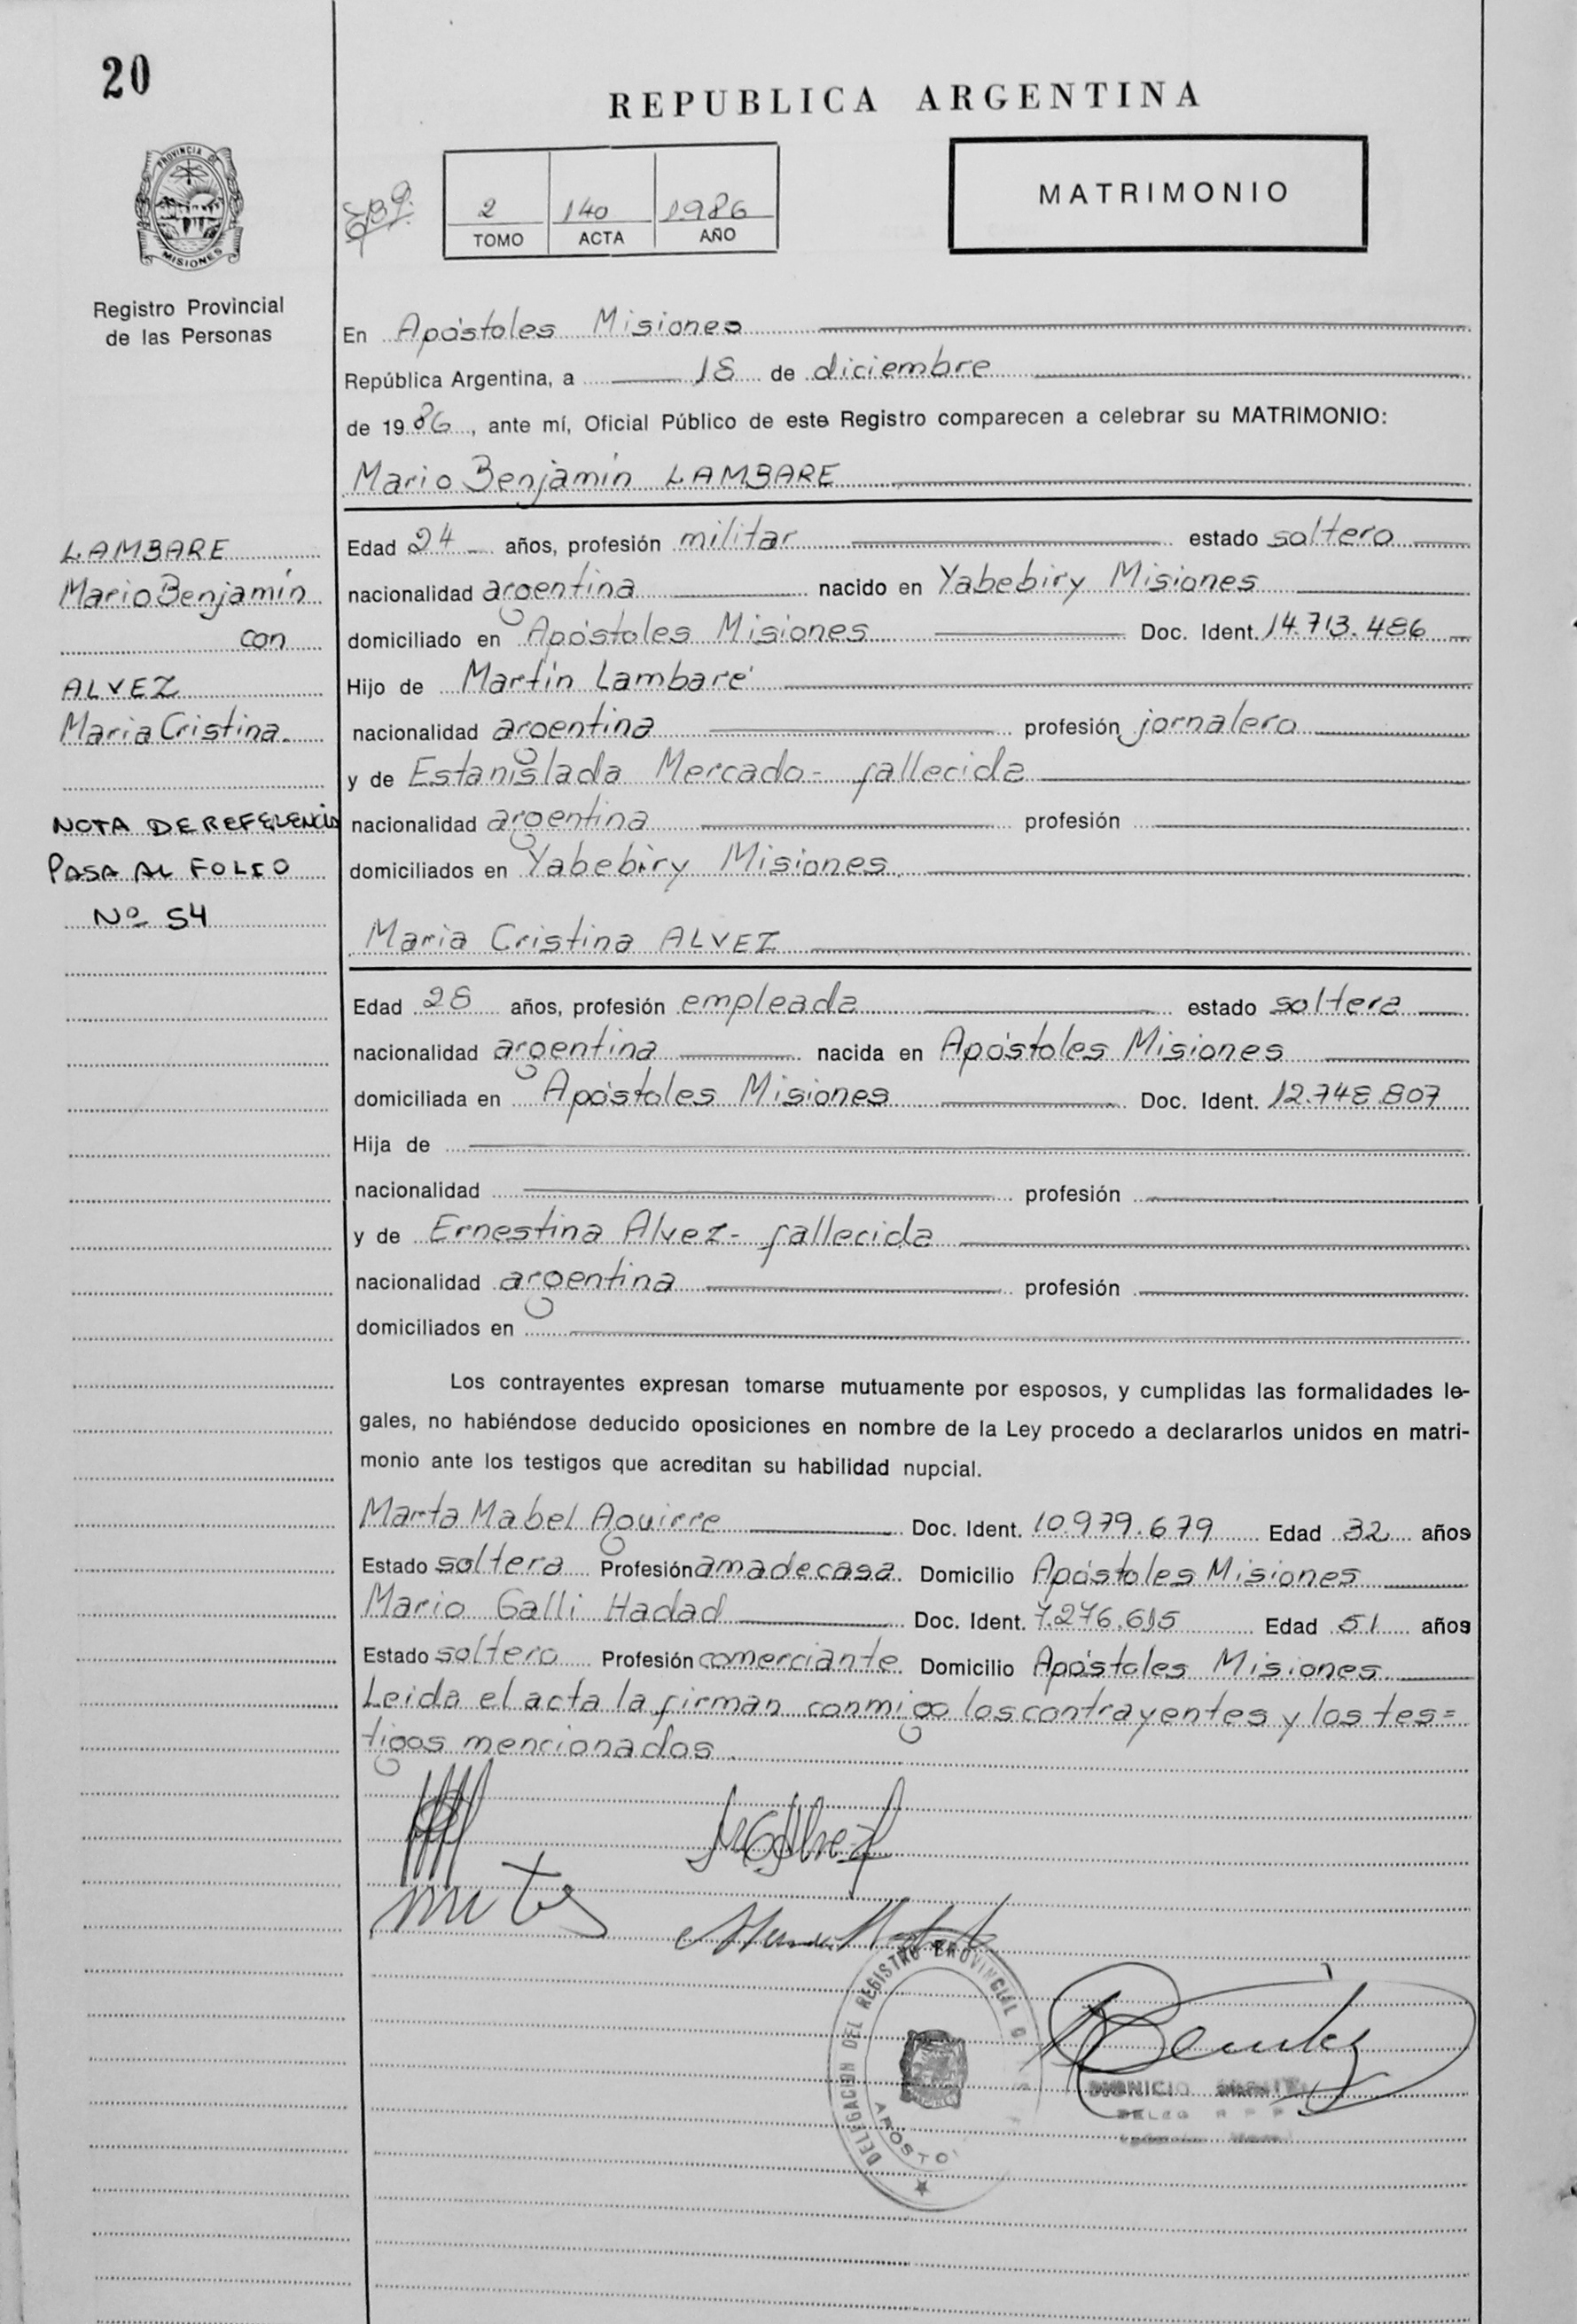 20
REPUBLICA ARGENTINA
PROVINCIA DE
MISIONES
2 140 1986
TOMO ACTA AÑO
MATRIMONIO
Registro Provincial
de las Personas
En Apóstoles Misiones
República Argentina, a 18 de diciembre
de 1986, ante mí, Oficial Público de este Registro comparecen a celebrar su MATRIMONIO:
Mario Benjamín LAMBARE
LAMBARE
Mario Benjamín
con
ALVEZ
Maria Cristina.
NOTA DE REFERENCIA
PASA AL FOLIO
Nº 54
Edad 24 años, profesión militar estado soltero
nacionalidad argentina nacido en Yabebiry Misiones
domiciliado en Apóstoles Misiones Doc. Ident. 14.713.486
Hijo de Martín Lambaré
nacionalidad argentina profesión jornalero
y de Estanislada Mercado- fallecida
nacionalidad argentina profesión
domiciliados en Yabebiry Misiones
Maria Cristina ALVEZ
Edad 28 años, profesión empleada estado soltera
nacionalidad argentina nacida en Apóstoles Misiones
domiciliada en Apóstoles Misiones Doc. Ident. 12.748.807
Hija de
nacionalidad profesión
y de Ernestina Alvez- fallecida
nacionalidad argentina profesión
domiciliados en
Los contrayentes expresan tomarse mutuamente por esposos, y cumplidas las formalidades le-
gales, no habiéndose deducido oposiciones en nombre de la Ley procedo a declararlos unidos en matri-
monio ante los testigos que acreditan su habilidad nupcial.
Marta Mabel Aguirre Doc. Ident. 10.979.679 Edad 32 años
Estado soltera Profesión ama de casa Domicilio Apóstoles Misiones
Mario Galli Hadad Doc. Ident. 7.276.615 Edad 51 años
Estado soltero Profesión comerciante Domicilio Apóstoles Misiones
Leida el acta la firman conmigo los contrayentes y los tes=
tigos mencionados.
DELEGACION DEL REGISTRO PROVINCIAL D
APOSTO